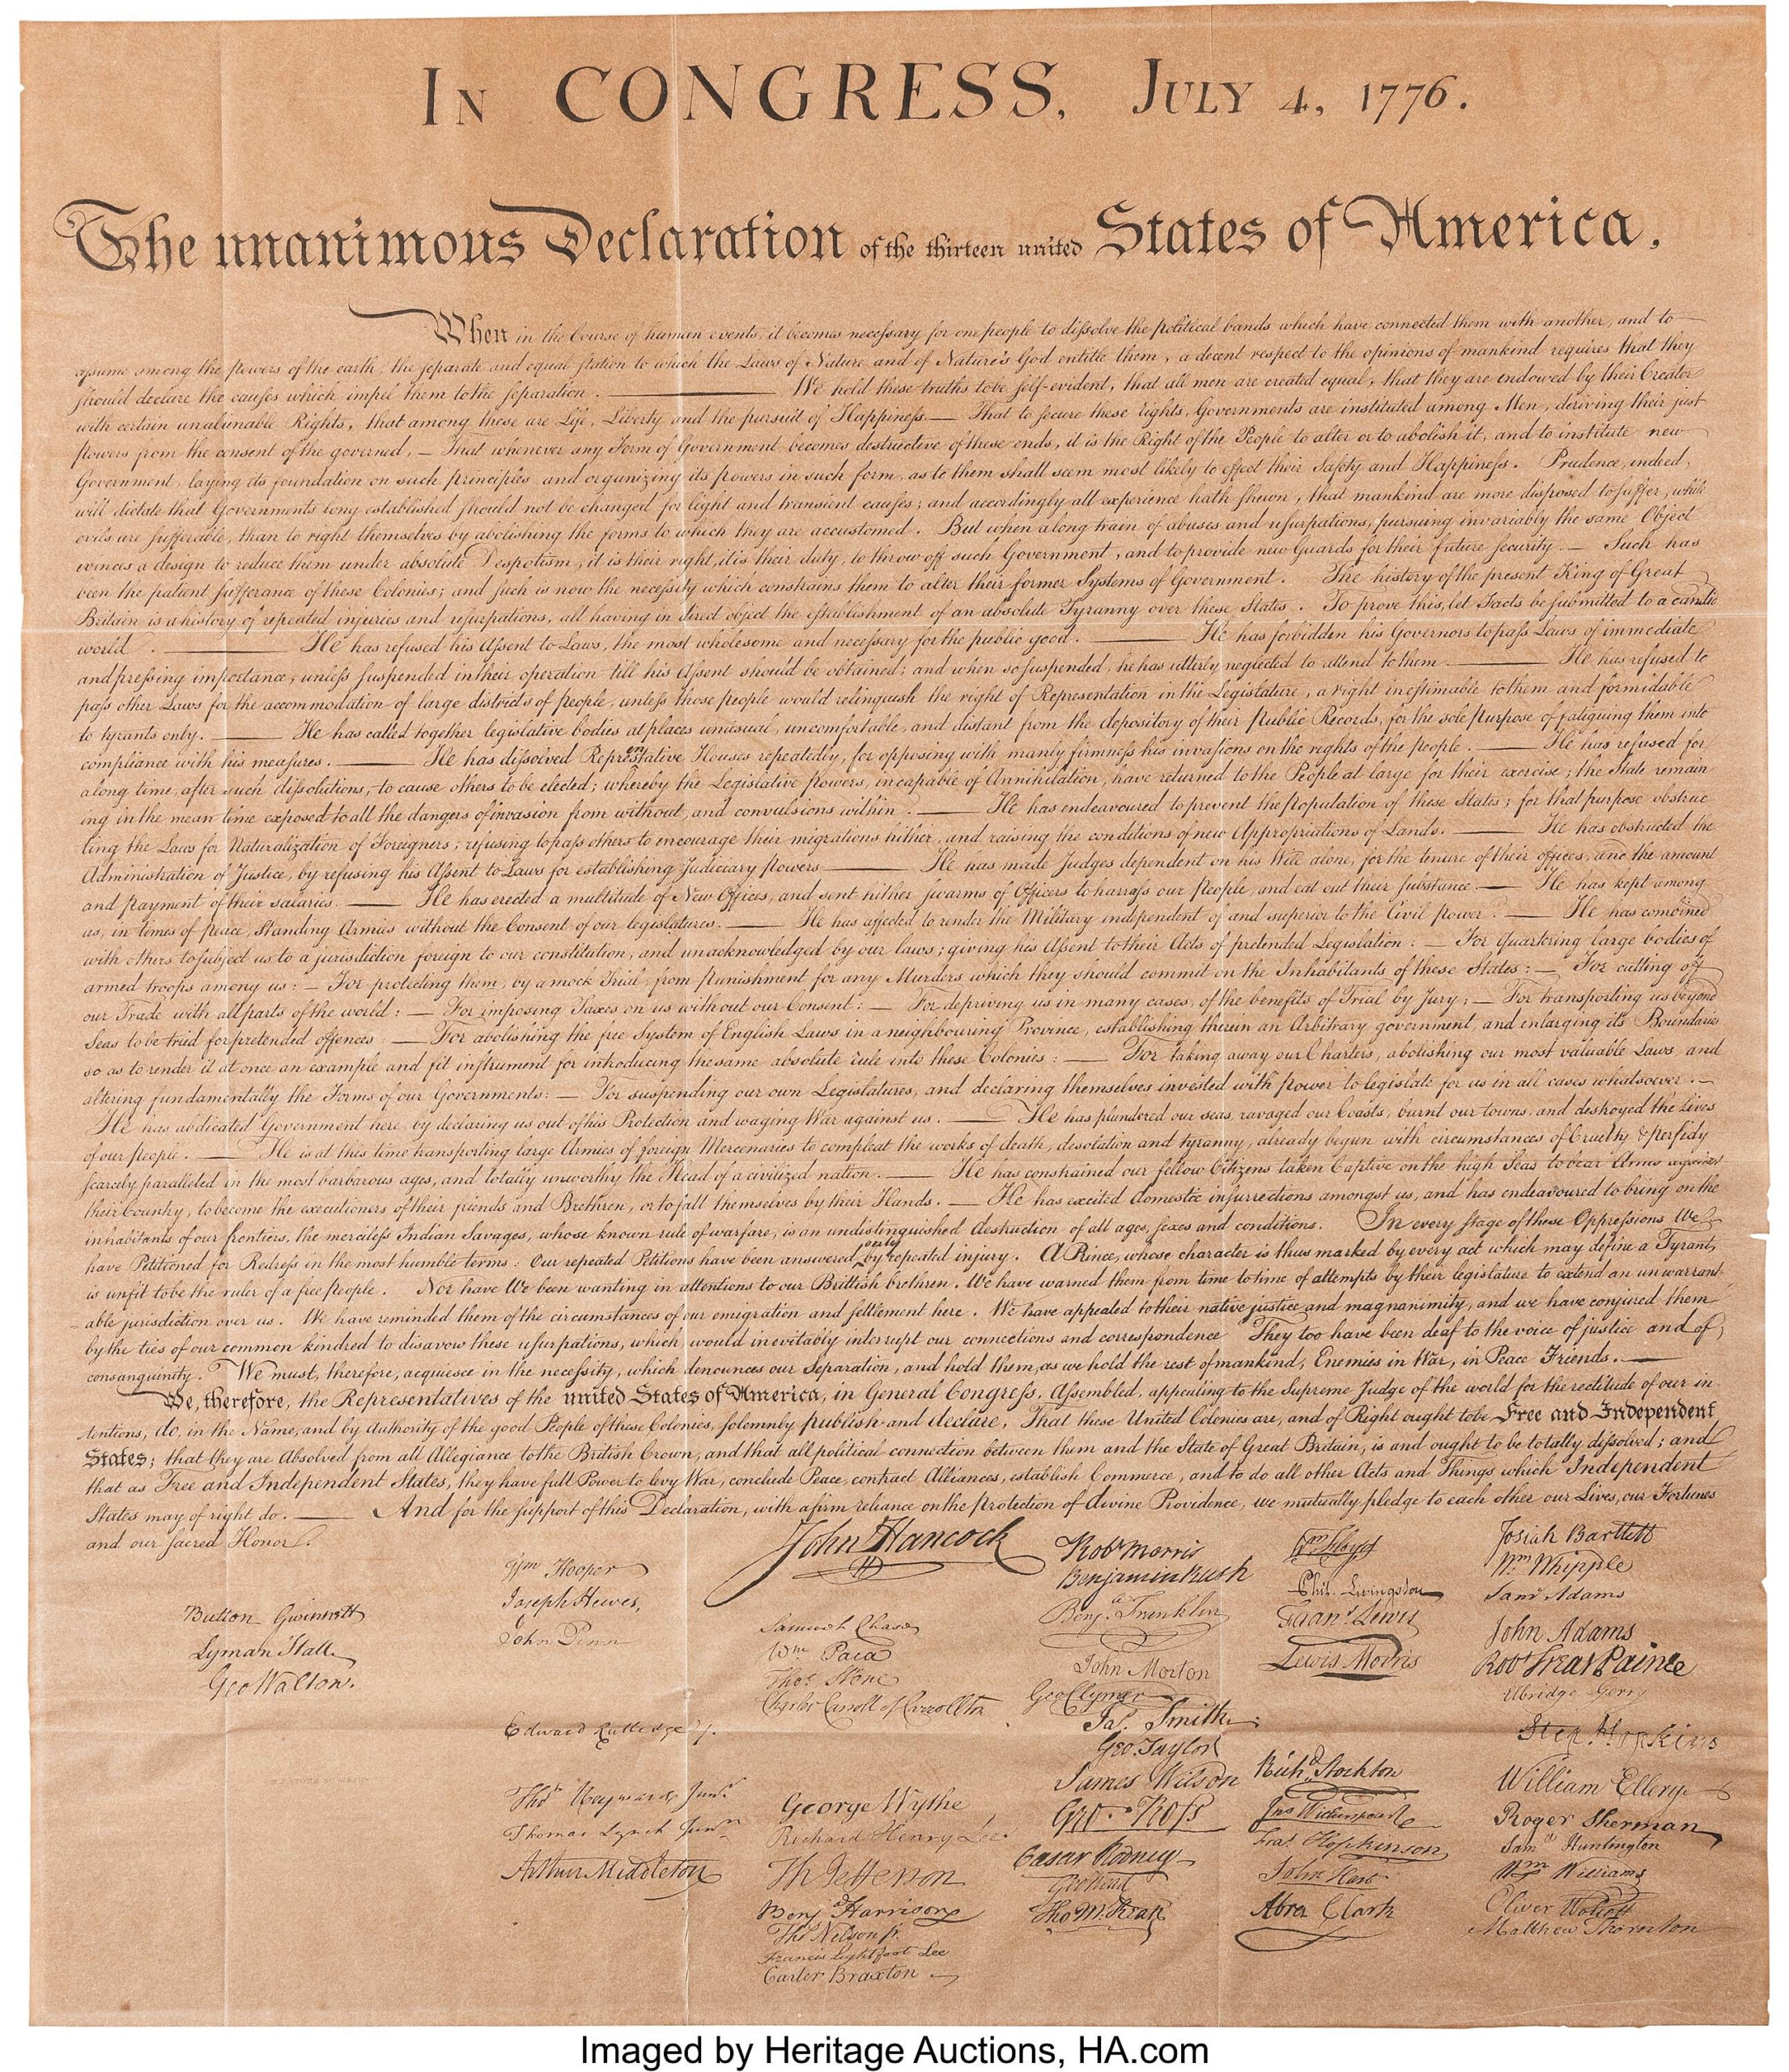 IN CONGRESS, JULY 4, 1776.
The unanimous Declaration of the thirteen united States of America,
When in the Course of human events, it becomes necessary for one people to dissolve the political bands which have connected them with another, and to
assume among the powers of the earth, the separate and equal station to which the Laws of Nature and of Nature's God entitle them, a decent respect to the opinions of mankind requires that they
should declare the causes which impel them to the separation. — We hold these truths to be self-evident, that all men are created equal, that they are endowed by their Creator
with certain unalienable Rights, that among these are Life, Liberty and the pursuit of Happiness. — That to secure these rights, Governments are instituted among Men, deriving their just
powers from the consent of the governed, — That whenever any Form of Government becomes destructive of these ends, it is the Right of the People to alter or to abolish it, and to institute new
Government, laying its foundation on such principles and organizing its powers in such form, as to them shall seem most likely to effect their Safety and Happiness. Prudence, indeed,
will dictate that Governments long established should not be changed for light and transient causes; and accordingly all experience hath shewn, that mankind are more disposed to suffer, while
evils are sufferable, than to right themselves by abolishing the forms to which they are accustomed. But when a long train of abuses and usurpations, pursuing invariably the same Object
evinces a design to reduce them under absolute Despotism, it is their right, it is their duty, to throw off such Government, and to provide new Guards for their future security. — Such has
been the patient sufferance of these Colonies; and such is now the necessity which constrains them to alter their former Systems of Government. The history of the present King of Great
Britain is a history of repeated injuries and usurpations, all having in direct object the establishment of an absolute Tyranny over these States. To prove this, let Facts be submitted to a candid
world. — He has refused his Assent to Laws, the most wholesome and necessary for the public good. — He has forbidden his Governors to pass Laws of immediate
and pressing importance, unless suspended in their operation till his Assent should be obtained; and when so suspended, he has utterly neglected to attend to them. — He has refused to
pass other Laws for the accommodation of large districts of people, unless those people would relinquish the right of Representation in the Legislature, a right inestimable to them and formidable
to tyrants only. — He has called together legislative bodies at places unusual, uncomfortable, and distant from the depository of their Public Records, for the sole purpose of fatiguing them into
compliance with his measures. — He has dissolved Representative Houses repeatedly, for opposing with manly firmness his invasions on the rights of the people. — He has refused for
a long time, after such dissolutions, to cause others to be elected; whereby the Legislative powers, incapable of Annihilation, have returned to the People at large for their exercise; the State remain
ing in the mean time exposed to all the dangers of invasion from without, and convulsions within. — He has endeavoured to prevent the population of these States; for that purpose obstruc
ting the Laws for Naturalization of Foreigners; refusing to pass others to encourage their migrations hither, and raising the conditions of new Appropriations of Lands. — He has obstructed the
Administration of Justice, by refusing his Assent to Laws for establishing Judiciary powers — He has made Judges dependent on his Will alone, for the tenure of their offices, and the amount
and payment of their salaries. — He has erected a multitude of New Offices, and sent hither swarms of Officers to harrass our People, and eat out their substance. — He has kept among
us, in times of peace, Standing Armies without the Consent of our legislatures. — He has affected to render the Military independent of and superior to the Civil power. — He has combined
with others to subject us to a jurisdiction foreign to our constitution, and unacknowledged by our laws; giving his Assent to their Acts of pretended Legislation: — For quartering large bodies of
armed troops among us: — For protecting them, by a mock Trial, from punishment for any Murders which they should commit on the Inhabitants of these States: — For cutting off
our Trade with all parts of the world: — For imposing Taxes on us without our Consent: — For depriving us in many cases, of the benefits of Trial by Jury; — For transporting us beyond
Seas to be tried for pretended offences — For abolishing the free System of English Laws in a neighbouring Province, establishing therein an Arbitrary government, and enlarging its Boundaries
so as to render it at once an example and fit instrument for introducing the same absolute rule into these Colonies: — For taking away our Charters, abolishing our most valuable Laws, and
altering fundamentally the Forms of our Governments: — For suspending our own Legislatures, and declaring themselves invested with power to legislate for us in all cases whatsoever. —
He has abdicated Government here, by declaring us out of his Protection and waging War against us. — He has plundered our seas, ravaged our Coasts, burnt our towns, and destroyed the Lives
of our people. — He is at this time transporting large Armies of foreign Mercenaries to compleat the works of death, desolation and tyranny, already begun with circumstances of Cruelty & perfidy
scarcely paralleled in the most barbarous ages, and totally unworthy the Head of a civilized nation. — He has constrained our fellow Citizens taken Captive on the high Seas to bear Arms against
their Country, to become the executioners of their friends and Brethren, or to fall themselves by their Hands. — He has excited domestic insurrections amongst us, and has endeavoured to bring on the
inhabitants of our frontiers, the merciless Indian Savages, whose known rule of warfare, is an undistinguished destruction of all ages, sexes and conditions. In every stage of these Oppressions We
have Petitioned for Redress in the most humble terms: Our repeated Petitions have been answered only by repeated injury. A Prince, whose character is thus marked by every act which may define a Tyrant,
is unfit to be the ruler of a free people. Nor have We been wanting in attentions to our Brittish brethren. We have warned them from time to time of attempts by their legislature to extend an unwarrant-
able jurisdiction over us. We have reminded them of the circumstances of our emigration and settlement here. We have appealed to their native justice and magnanimity, and we have conjured them
by the ties of our common kindred to disavow these usurpations, which would inevitably interrupt our connections and correspondence They too have been deaf to the voice of justice and of
consanguinity. We must, therefore, acquiesce in the necessity, which denounces our Separation, and hold them, as we hold the rest of mankind, Enemies in War, in Peace Friends. —
We, therefore, the Representatives of the united States of America, in General Congress, Assembled, appealing to the Supreme Judge of the world for the rectitude of our in-
tentions, do, in the Name, and by Authority of the good People of these Colonies, solemnly publish and declare, That these United Colonies are, and of Right ought to be Free and Independent
States; that they are Absolved from all Allegiance to the British Crown, and that all political connection between them and the State of Great Britain, is and ought to be totally dissolved; and
that as Free and Independent States, they have full Power to levy War, conclude Peace, contract Alliances, establish Commerce, and to do all other Acts and Things which Independent
States may of right do. — And for the support of this Declaration, with a firm reliance on the protection of divine Providence, we mutually pledge to each other our Lives, our Fortunes
and our sacred Honor.
Button Gwinnett
Lyman Hall
Geo Walton.
Wm Hooper
Joseph Hewes,
John Penn
Edward Rutledge /.
Thos Heyward Junr.
Thomas Lynch Junr.
Arthur Middleton
John Hancock
Samuel Chase
Wm Paca
Thos Stone
Charles Carroll of Carrollton
George Wythe
Richard Henry Lee
Th Jefferson
Benj Harrison
Thos Nelson jr.
Francis Lightfoot Lee
Carter Braxton
Robt Morris
Benjamin Rush
Benj. Franklin
John Morton
Geo Clymer
Jas. Smith
Geo. Taylor
James Wilson
Geo. Ross
Caesar Rodney
Geo Read
Tho M:Kean
Wm Floyd
Phil. Livingston
Frans. Lewis
Lewis Morris
Richd. Stockton
Jno Witherspoon
Fras. Hopkinson
John Hart
Abra Clark
Josiah Bartlett
Wm Whipple
Saml Adams
John Adams
Robt Treat Paine
Elbridge Gerry
Step. Hopkins
William Ellery
Roger Sherman
Saml Huntington
Wm Williams
Oliver Wolcott
Matthew Thornton
Imaged by Heritage Auctions, HA.com